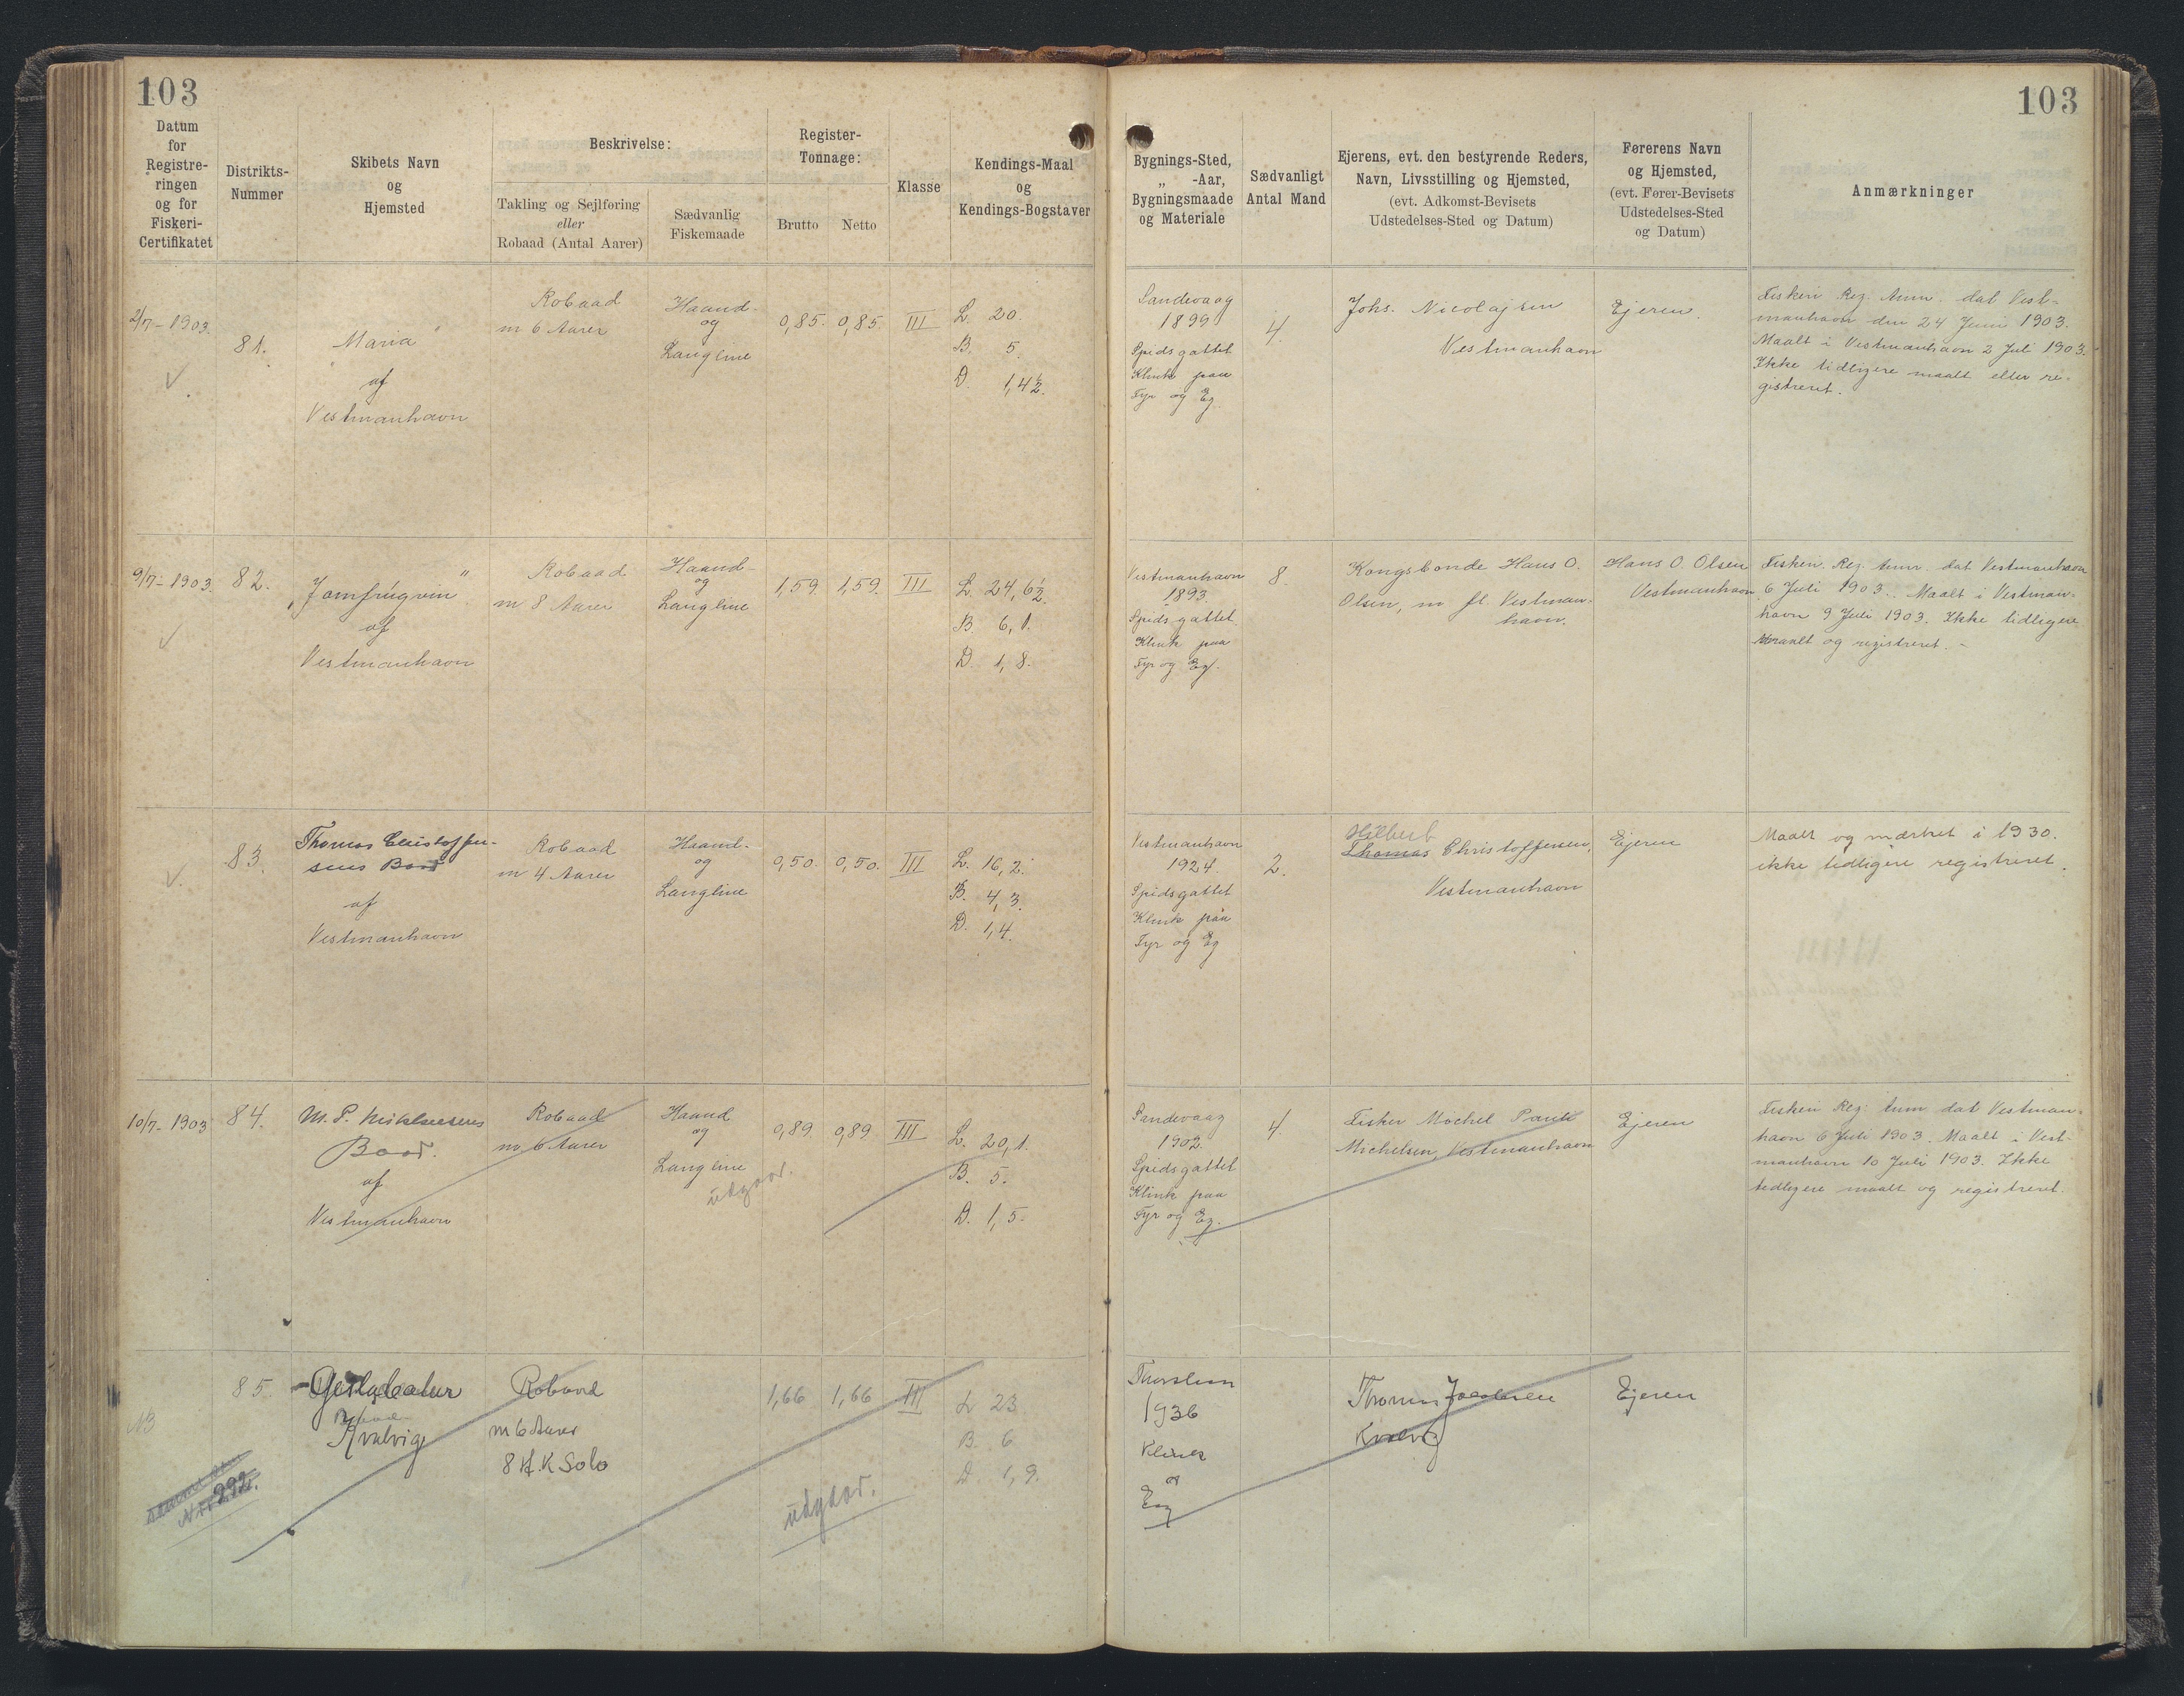 103
103
Datum
for
Registre-
ringen
og for
Fiskeri-
Certifikatet
Distrikts-
Nummer
Skibets Navn
og
Hjemsted
Beskrivelse:
Takling og Sejlføring
eller
Robaad (Antal Aarer)
Sædvanlig
Fiskemaade
Register-
Tonnage:
Brutto
Netto
Klasse
Kendings-Maal
og
Kendings-Bogstaver
Bygnings-Sted,
„ -Aar,
Bygningsmaade
og Materiale
Sædvanligt
Antal Mand
Ejerens, evt. den bestyrende Reders,
Navn, Livsstilling og Hjemsted,
(evt. Adkomst-Bevisets
Udstedelses-Sted og Datum)
Førerens Navn
og Hjemsted,
(evt. Fører-Bevisets
Udstedelses-Sted
og Datum)
Anmærkninger
2/7-1903.
81.
Maria"
af
Vestmanhavn
Robaad
m 6 Aarer
Haand-
og
Langline
0,85.
0,85.
III
L. 20.
B. 5.
D. 1,4½.
Sandevaag
1899
Spidsgattet
Klink paa
Fyr og Eg.
4.
Johs. Nicolajsen
Vestmanhavn
Ejeren.
Fiskeri Reg. Anm. dat Vest-
manhavn den 24 Juni 1903.
Maalt i Vestmanhavn 2 Juli 1903.
Ikke tidligere maalt eller re-
gistreret.
9/7-1903.
82.
„Jomfrúgvin"
af
Vestmanhavn
Robaad
m 8 Aarer
Haand-
og
Langline
1,59.
1,59.
III
L. 24,6½.
B. 6,1.
D. 1,8.
Vestmanhavn
1893
Spidsgattet.
Klink paa
Fyr og Eg.
8.
Kongsbonde Hans O.
Olsen, m fl. Vestman-
havn.
Hans O. Olsen
Vestmanhavn
Fiskeri. Reg. Anm. dat Vestmanhavn
6 Juli 1903. Maalt i Vestman-
havn 9 Juli 1903. Ikke tidligere
maalt og registreret. -
83.
Thomas Christoffer-
sens Baad
af
Vestmanhavn
Robaad
m 4 Aarer
Haand-
og
Langline
0,50.
0,50.
III
L. 16,2.
B. 4,3.
D. 1,4.
Vestmanhavn
1924.
Spidsgattet
Klink paa
Fyr og Eg
2.
Hilbert
Thomas Christoffersen,
Vestmanhavn
Ejeren
Maalt og mærket i 1930.
ikke tidligere registreret.
10/7-1903
84.
M. P. Mikkelsens
Baad.
af
Vestmanhavn
Robaad
m 6 Aarer
Haand
og
Langline
udgaar.
0,89.
0,89
III
L. 20,1.
B. 5.
D. 1,5.
Sandevaag
1902.
Spidsgattet
Klink paa
Fyr og Eg.
4
Fisker Michel Pauli
Michelsen, Vestmanhavn
Ejeren
Fiskeri Reg. Anm dat Vestman-
havn 6 Juli 1903. Maalt i Vest-
manhavn 10 Juli 1903. Ikke
tidligere maalt og registreret.
NB
85.
Kvalvig
292.
Robaad
m 6 Aarer
8 H.K Solo
1,66
1,66
III
L 23
B. 6
D. 1,9.
udgaar.
1936
Klink
og
Eg
Thomas Jacobsen
Kvalvig
Ejeren